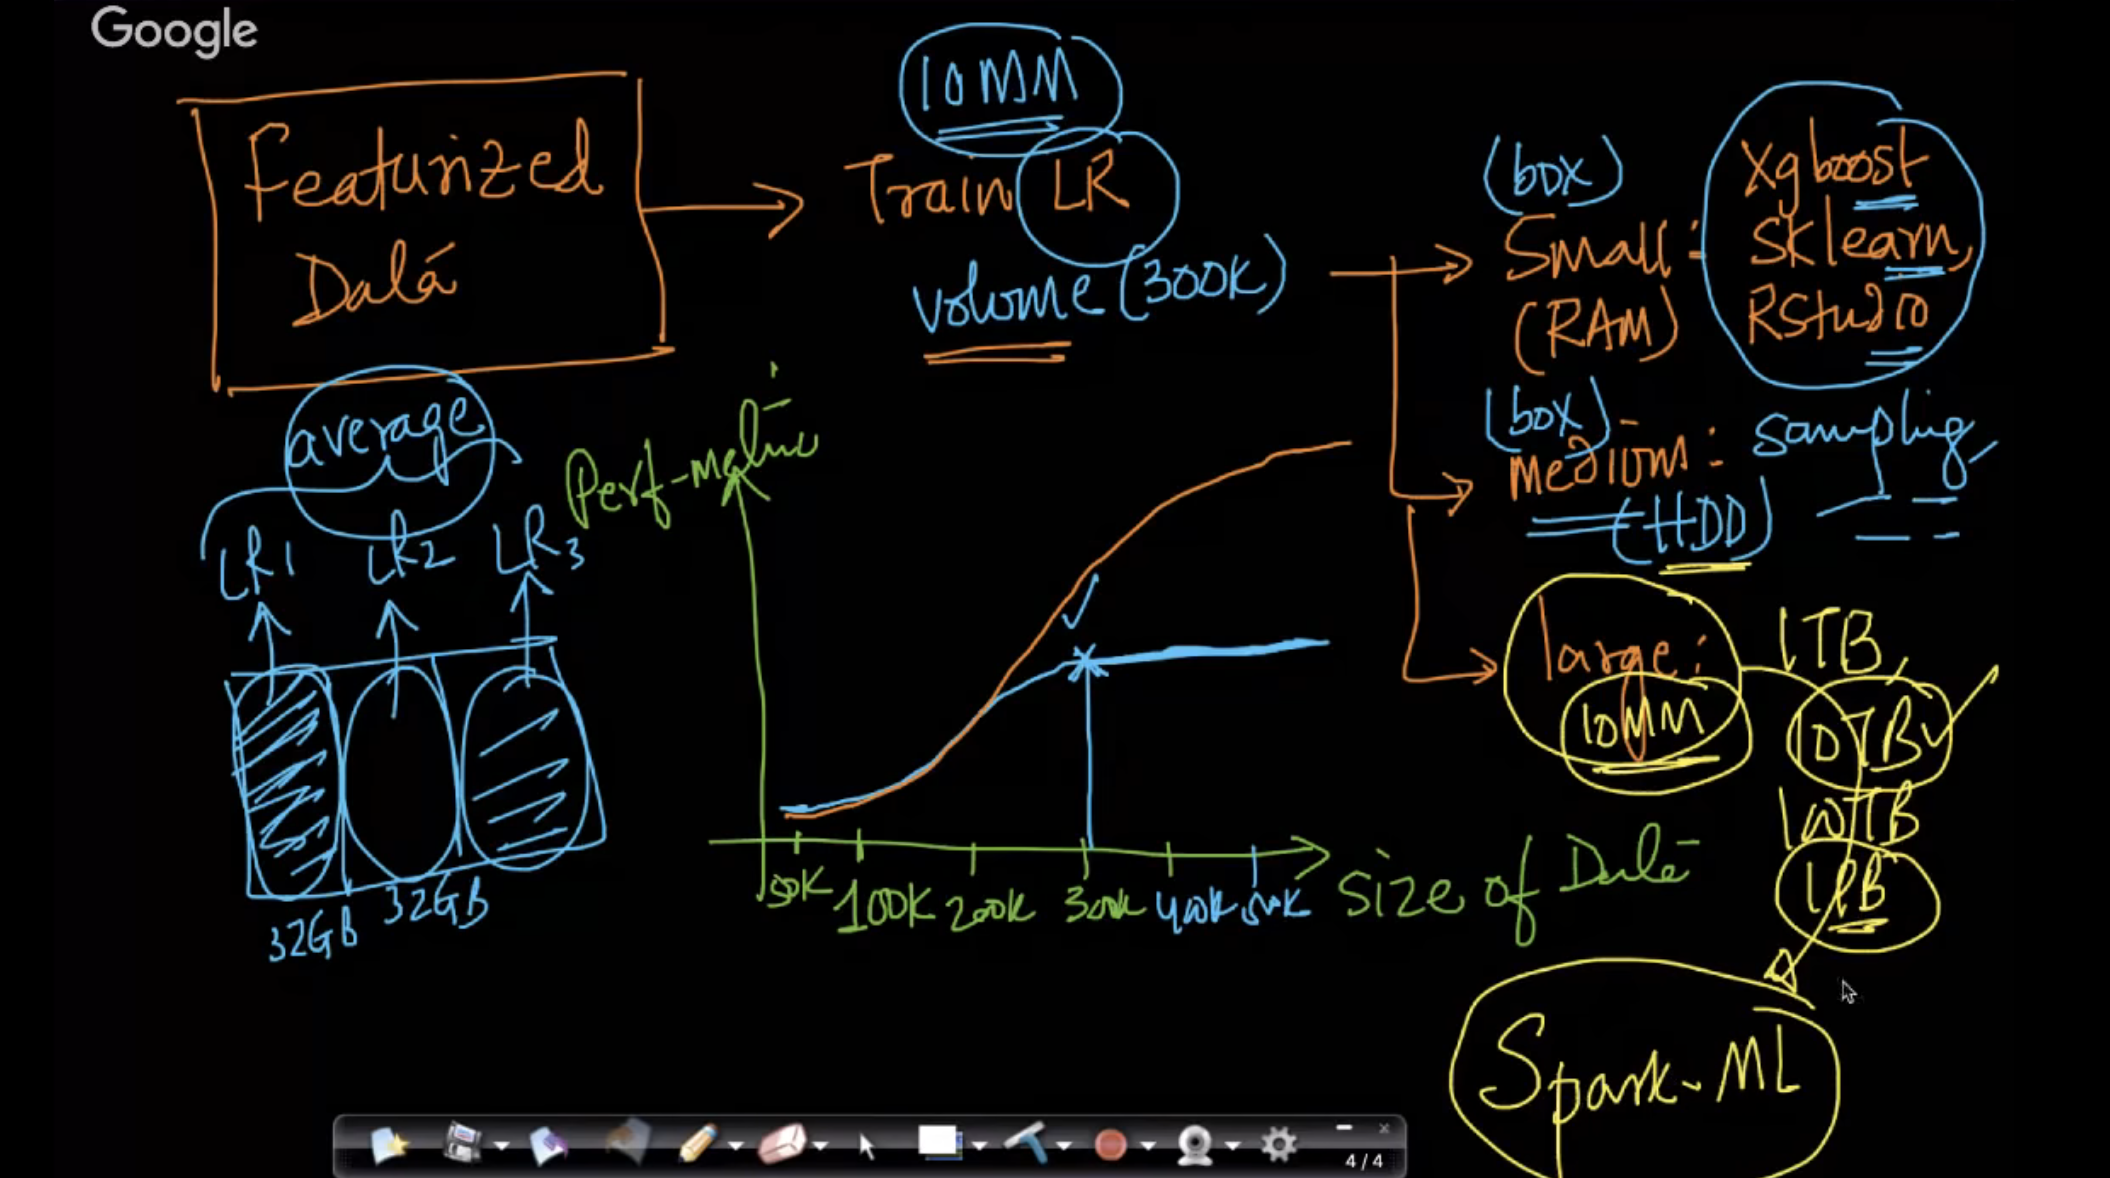 Google
Featurized
Data
10MM
Train LR
volume (300K)
(box)
Small:
(RAM)
Xgboost
Sklearn,
RStudio
(box)
Medium:
(HDD)
sampling,
large:
10MM
1TB,
10TB
100TB
1PB
Spark-ML
average
LR1
LR2
LR3
32GB
32GB
Perf-metric
50K
100K
200K
300K
400K
500K
Size of Data
4/4